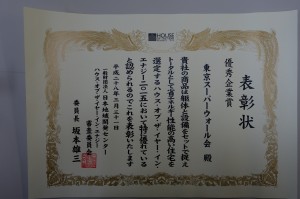 HOUSE
表彰状
優秀企業賞
東京スーパーウォール会 殿
貴社の商品は躯体と設備をセットで捉え
トータルとして省エネルギー性能の高い住宅を
選定するハウス・オブ・ザ・イヤー・イン・
エナジー二〇一五において特に優れている
と認められるのでこれを表彰いたします
平成二十八年三月三十一日
一般財団法人日本地域開発センター
ハウス・オブ・ザ・イヤー・イン・エナジー
審査委員会
委員長 坂本雄三